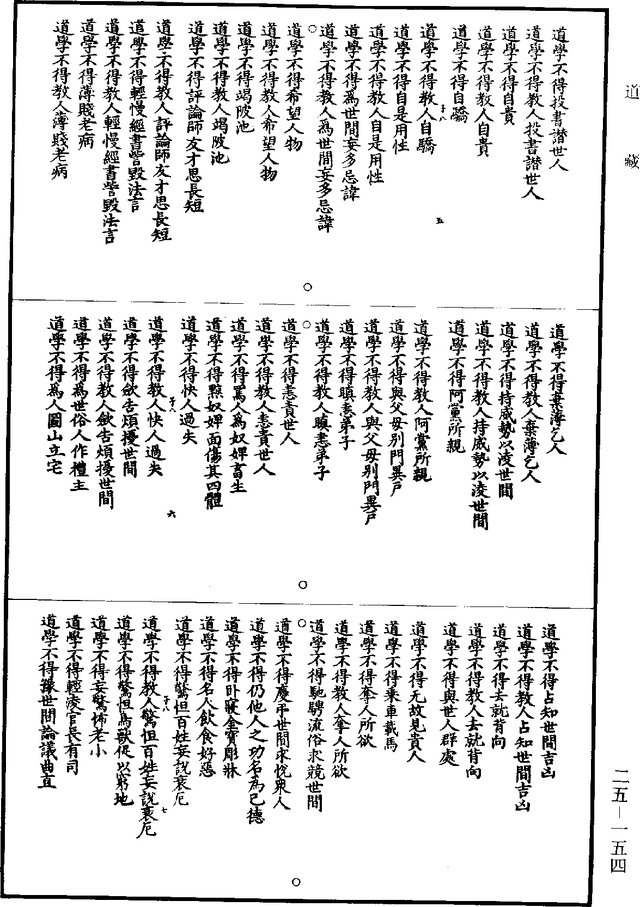 道藏
道學不得投書譖世人
道學不得教人投書譖世人
道學不得自貴
道學不得教人自貴
道學不得自驕
道學不得教人自驕
道學不得自是用性
道學不得教人自是用性
道學不得為世間妄多忌諱
道學不得教人為世間妄多忌諱
道學不得希望人物
道學不得教人希望人物
道學不得竭陂池
道學不得教人竭陂池
道學不得評論師友才思長短
道學不得教人評論師友才思長短
道學不得輕慢經書訾毀法言
道學不得教人輕慢經書訾毀法言
道學不得薄賤老病
道學不得教人薄賤老病
道學不得棄薄乞人
道學不得教人棄薄乞人
道學不得持威勢以凌世間
道學不得教人持威勢以凌世間
道學不得阿黨所親
道學不得教人阿黨所親
道學不得與父母別門異戶
道學不得教人與父母別門異戶
道學不得瞋恚弟子
道學不得教人瞋恚弟子
道學不得恚責世人
道學不得教人恚責世人
道學不得罵人為奴婢畜生
道學不得黥奴婢面傷其四體
道學不得快人過失
道學不得教人快人過失
道學不得歛合煩擾世間
道學不得教人歛合煩擾世間
道學不得為世俗人作禮主
道學不得為人圖山立宅
道學不得占知世間吉凶
道學不得教人占知世間吉凶
道學不得去就背向
道學不得教人去就背向
道學不得與世人群處
道學不得无故見貴人
道學不得乘車載馬
道學不得奪人所欲
道學不得教人奪人所欲
道學不得馳騁流俗求競世間
道學不得慶弔世間求悅衆人
道學不得仍他人之功名為己德
道學不得卧寢金寶彫牀
道學不得名人飲食好惡
道學不得驚怛百姓妄說衰厄
道學不得教人驚怛百姓妄說衰厄
道學不得驚怛鳥獸促以窮地
道學不得妄驚怖老小
道學不得輕凌官長有司
道學不得豫世間論議曲直
二五－一五四